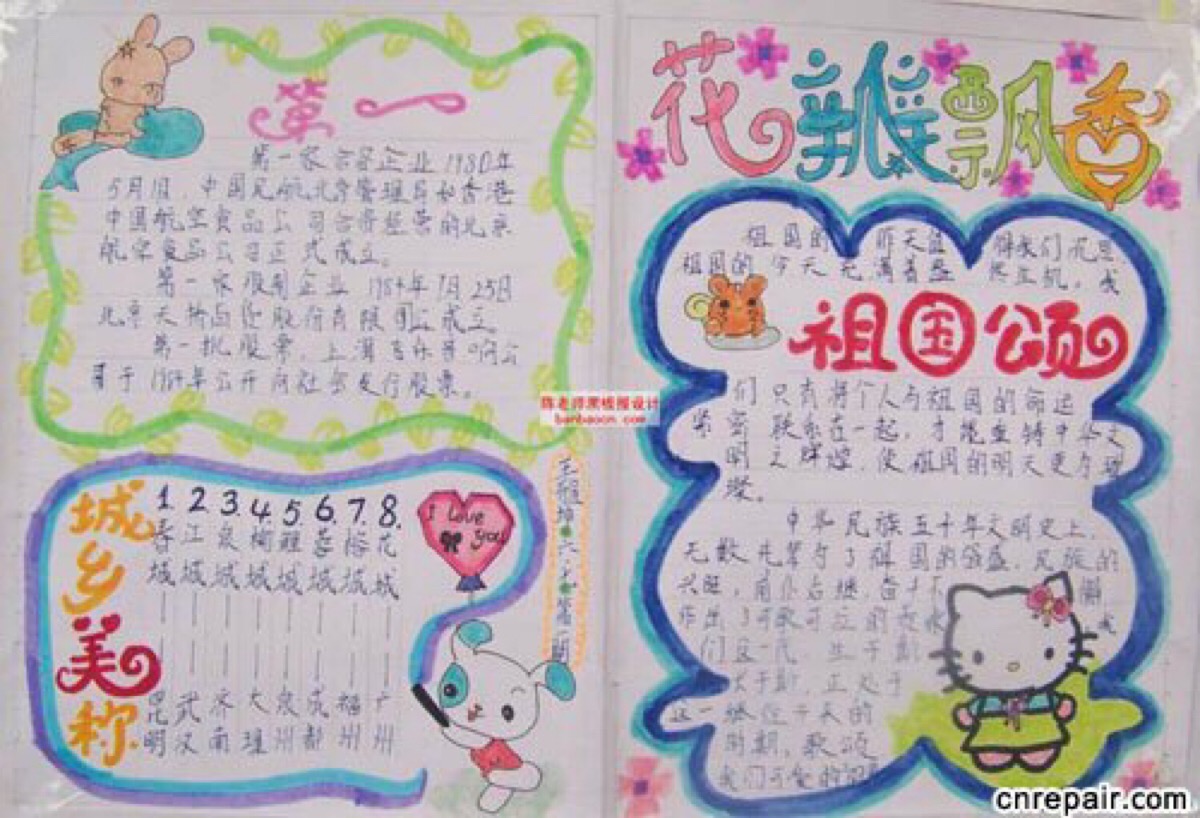 第一
第一家合资企业1980年
5月1日,中国民航北京管理局和香港
中国航空食品公司合资经营的北京
航空食品公司正式成立。
第一家股制企业1984年7月25日
北京天桥百货股份有限公司成立
第一批股票,上海
于1984年公开向社会发行股票。
陈老师黑板报设计
banbaocn.com
城乡美称
1 2 3 4 5 6 7 8.
春 江 泉 榆 鲤 蓉 榕 花
城 城 城 城 城 城 城 城
昆 武 济 大 泉 成 福 广
明 汉 南 理 州 都 州 州
I Love
you
花瓣飘香
祖国的昨天值得我们沉思
祖国的今天充满着盎然生机,我
祖国颂
们只有将个人与祖国的命运
紧密联系在一起,才能重铸中华文
明之辉煌,使祖国的明天更为璀
璨。
中华民族五千年文明史上,
无数先辈为了祖国的强盛,民族的
兴旺,前仆后继,奋斗不懈
作出了可歌可泣的 我
们这一代 生于斯
长于斯,正处于
这一继往开来的
时期,歌颂
我们可爱的祖国
cnrepair.com